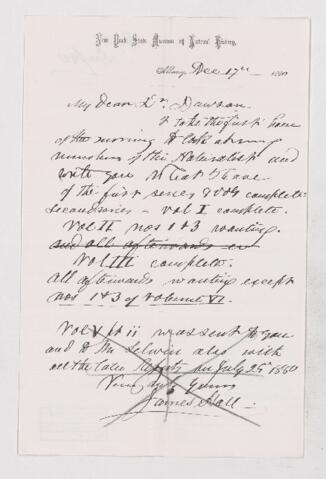 New York State Museum of Natural History,
Albany, Dec 17th 188
My Dear Dr Dawson,
I take the first hour
of the morning to look at my
numbers of the Naturalist and
write you what I have.
of the first series 8 vols complete
second series — vol I complete.
Vol II nos 1 & 3 wanting
and all afterwards
Vol III complete.
all afterwards wanting except
nos 1 & 3 of volume VI.
Vol V pt ii was sent to you
and to Mr Selwyn also with
all the later Reports on July 29th 1880
Very truly yours
James Hall